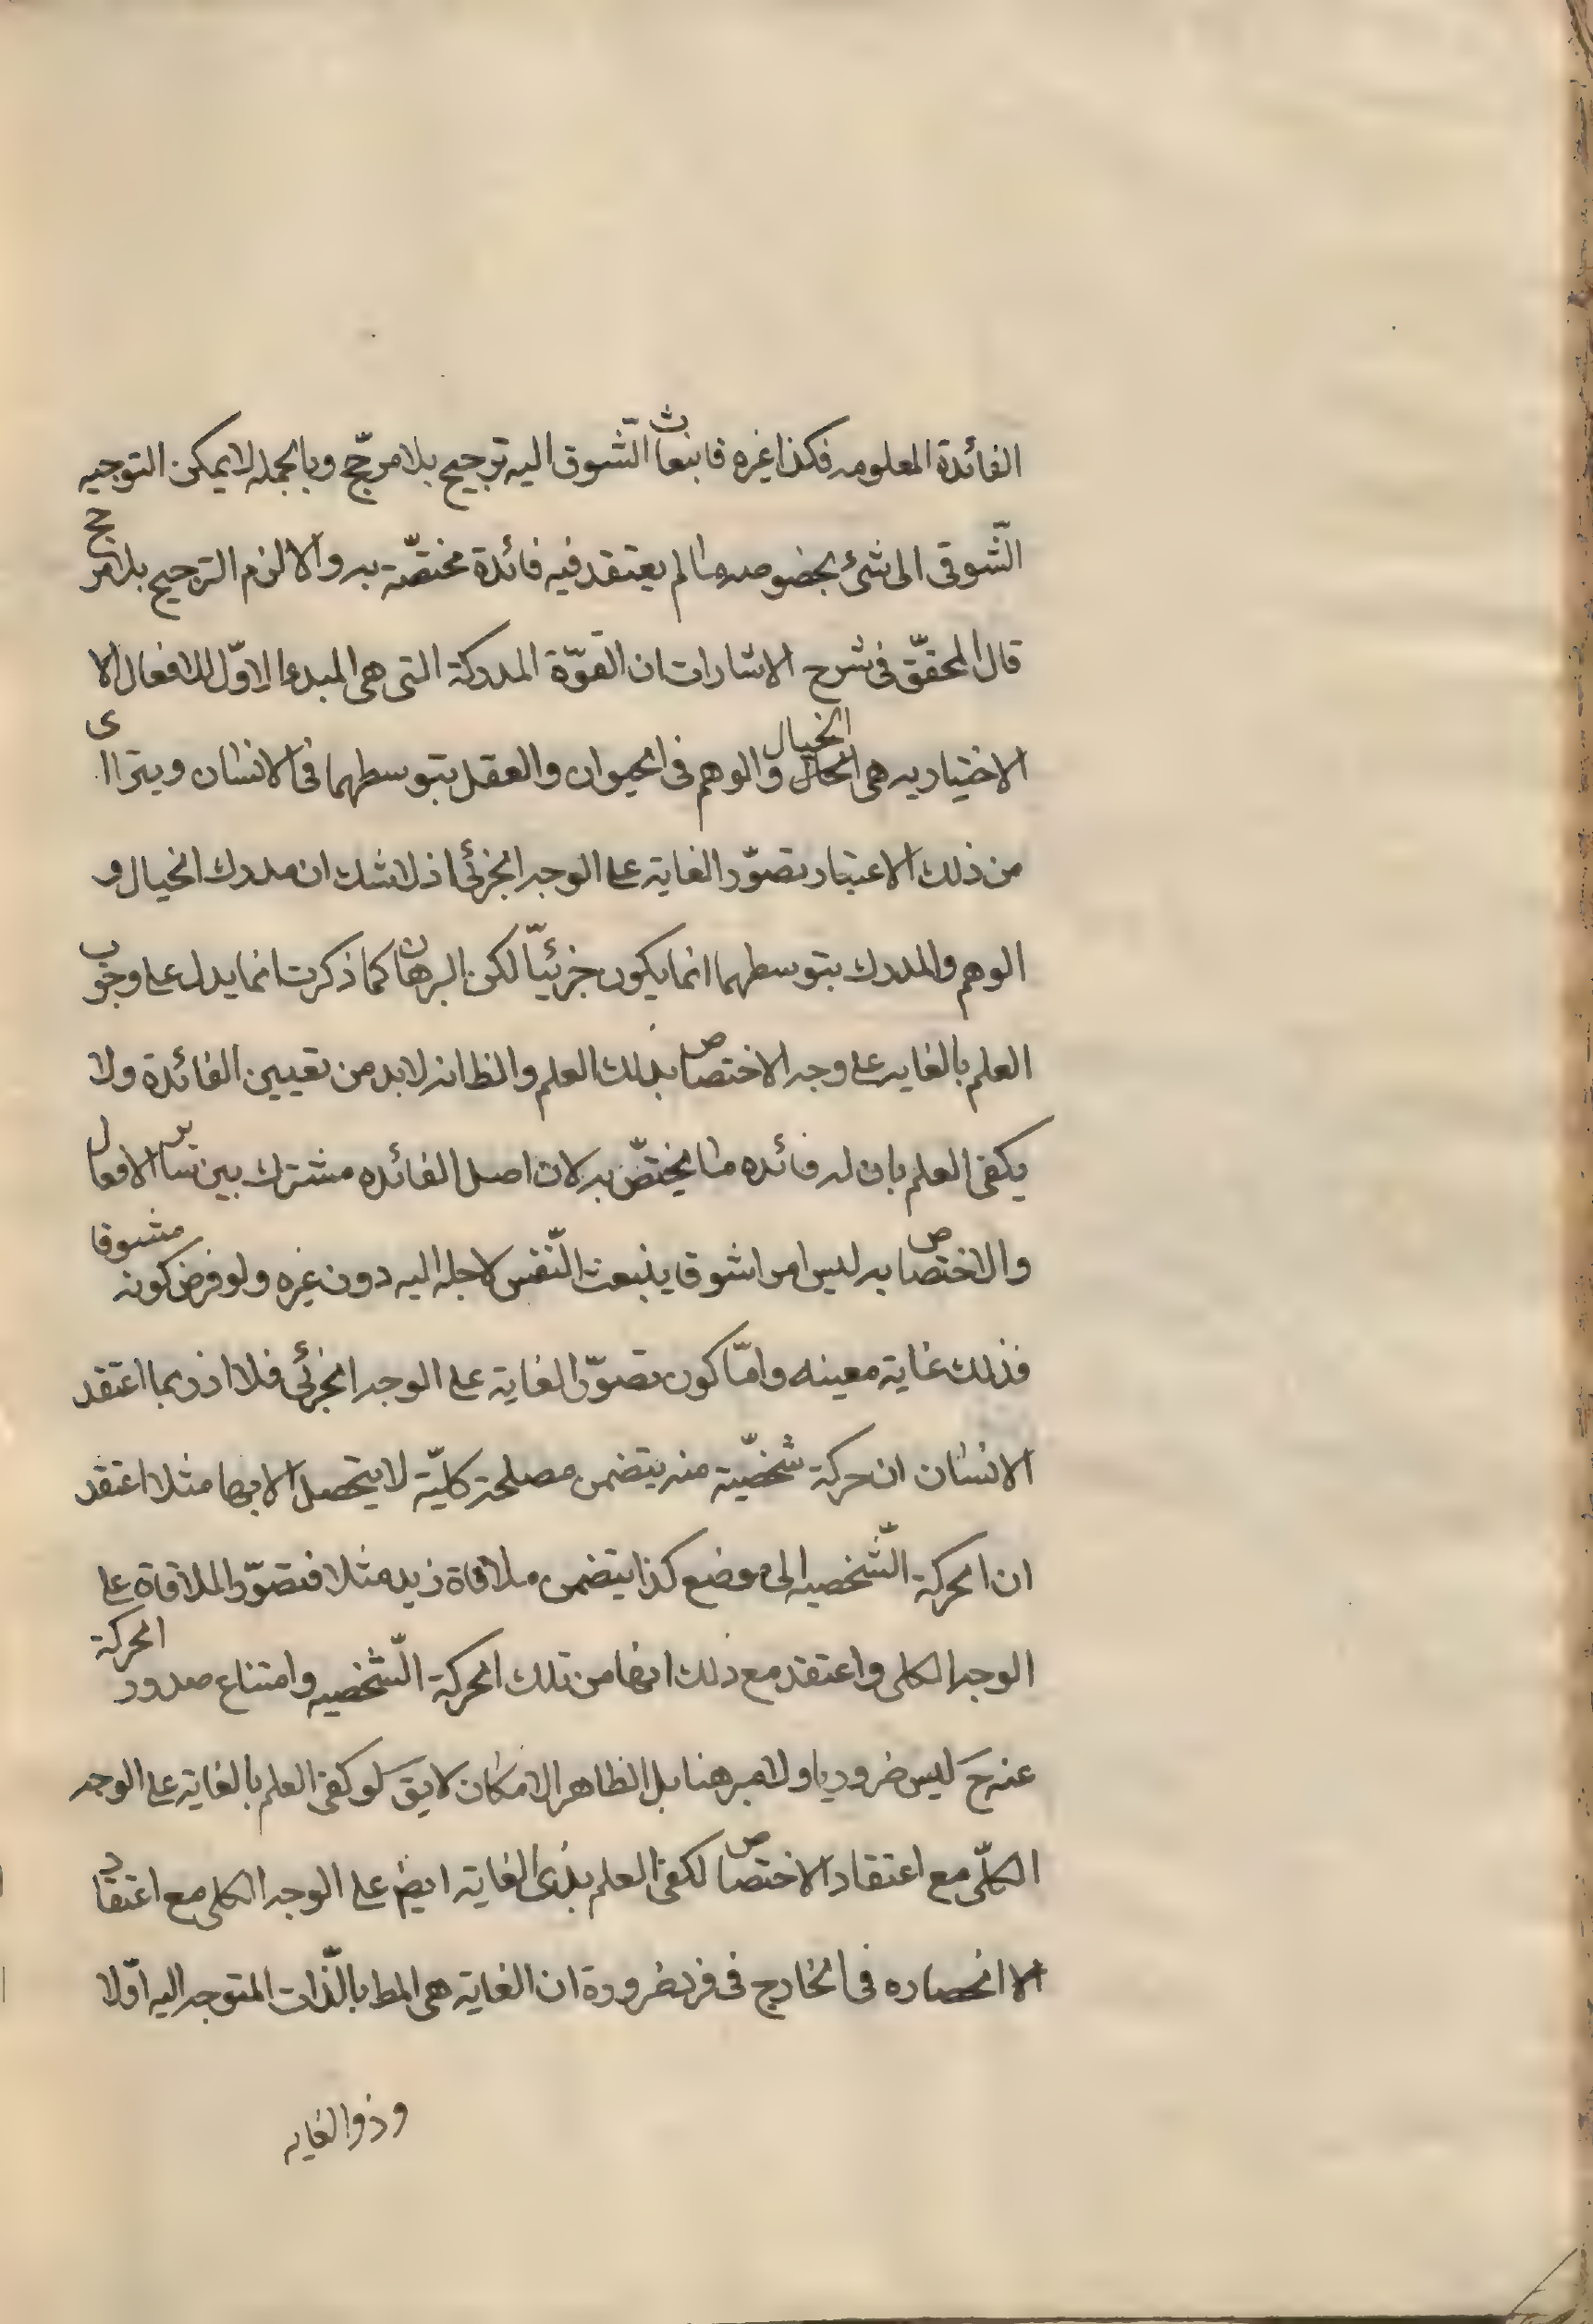 الفائدة المعلومه فكذا غيره فانبعاث الشّوق اليه ترجيح بلا مرجّح وبالجمله لا يمكن التوجيه
الشّوقى الى شئ بخصوصه ما لم يعتقد فيه فائدة مختصّة به والا لزم الترجيح بلا مرجح
قال المحقّق فى شرح الاشارات ان القوّة المدركة التى هى المبدء الاوّل للافعال الا
الاختياريه هى الخيال والوهم فى الحيوان والعقل بتوسطهما فى الانسان ويترااى
من ذلك الاعتبار تصوّر الغاية على الوجه الجزئى اذ لا شك ان مدرك الخيال و
الوهم والمدرك بتوسطهما انما يكون جزئيّا لكن البرهان كما ذكرت انما يدل على وجوب
العلم بالغايه على وجه الاختصاص بذلك العلم والظ انه لابد من تعيين الفائدة ولا
يكفى العلم بان له فائده ما يختصّ به لان اصل الفائده مشترك بين سائر الافعال
والاختصاص به ليس امرا شوقا ينبعث النّفس لاجله اليه دون غيره ولو فرض كونه مشوقا
فذلك غاية معينه وامّا كون تصوّر الغاية على الوجه الجزئى فلا اذ ربما اعتقد
الانسان ان حركة شخصيّة منه يتضمن مصلحة كليّة لا يتحصل الا بها مثلا اعتقد
ان الحركة الشّخصيه الى موضع كذا يتضمن ملاقاة زيد مثلا فتصوّر الملاقاة على
الوجه الكلى واعتقد مع ذلك انها من تلك الحركة الشّخصيه وامتناع صدور الحركة
عنه ح ليس ضروريا ولا مبرهنا بل الظاهر الامكان لا يق لو كفى العلم بالغاية على الوجه
الكلّى مع اعتقاد الاختصاص لكفى العلم بذى الغاية ايض على الوجه الكلى مع اعتقاد
الا انحصاره فى الخارج فى فرد ضرورة ان الغاية هى المط بالذّات المتوجه اليه اوّلا
وذو الغايه